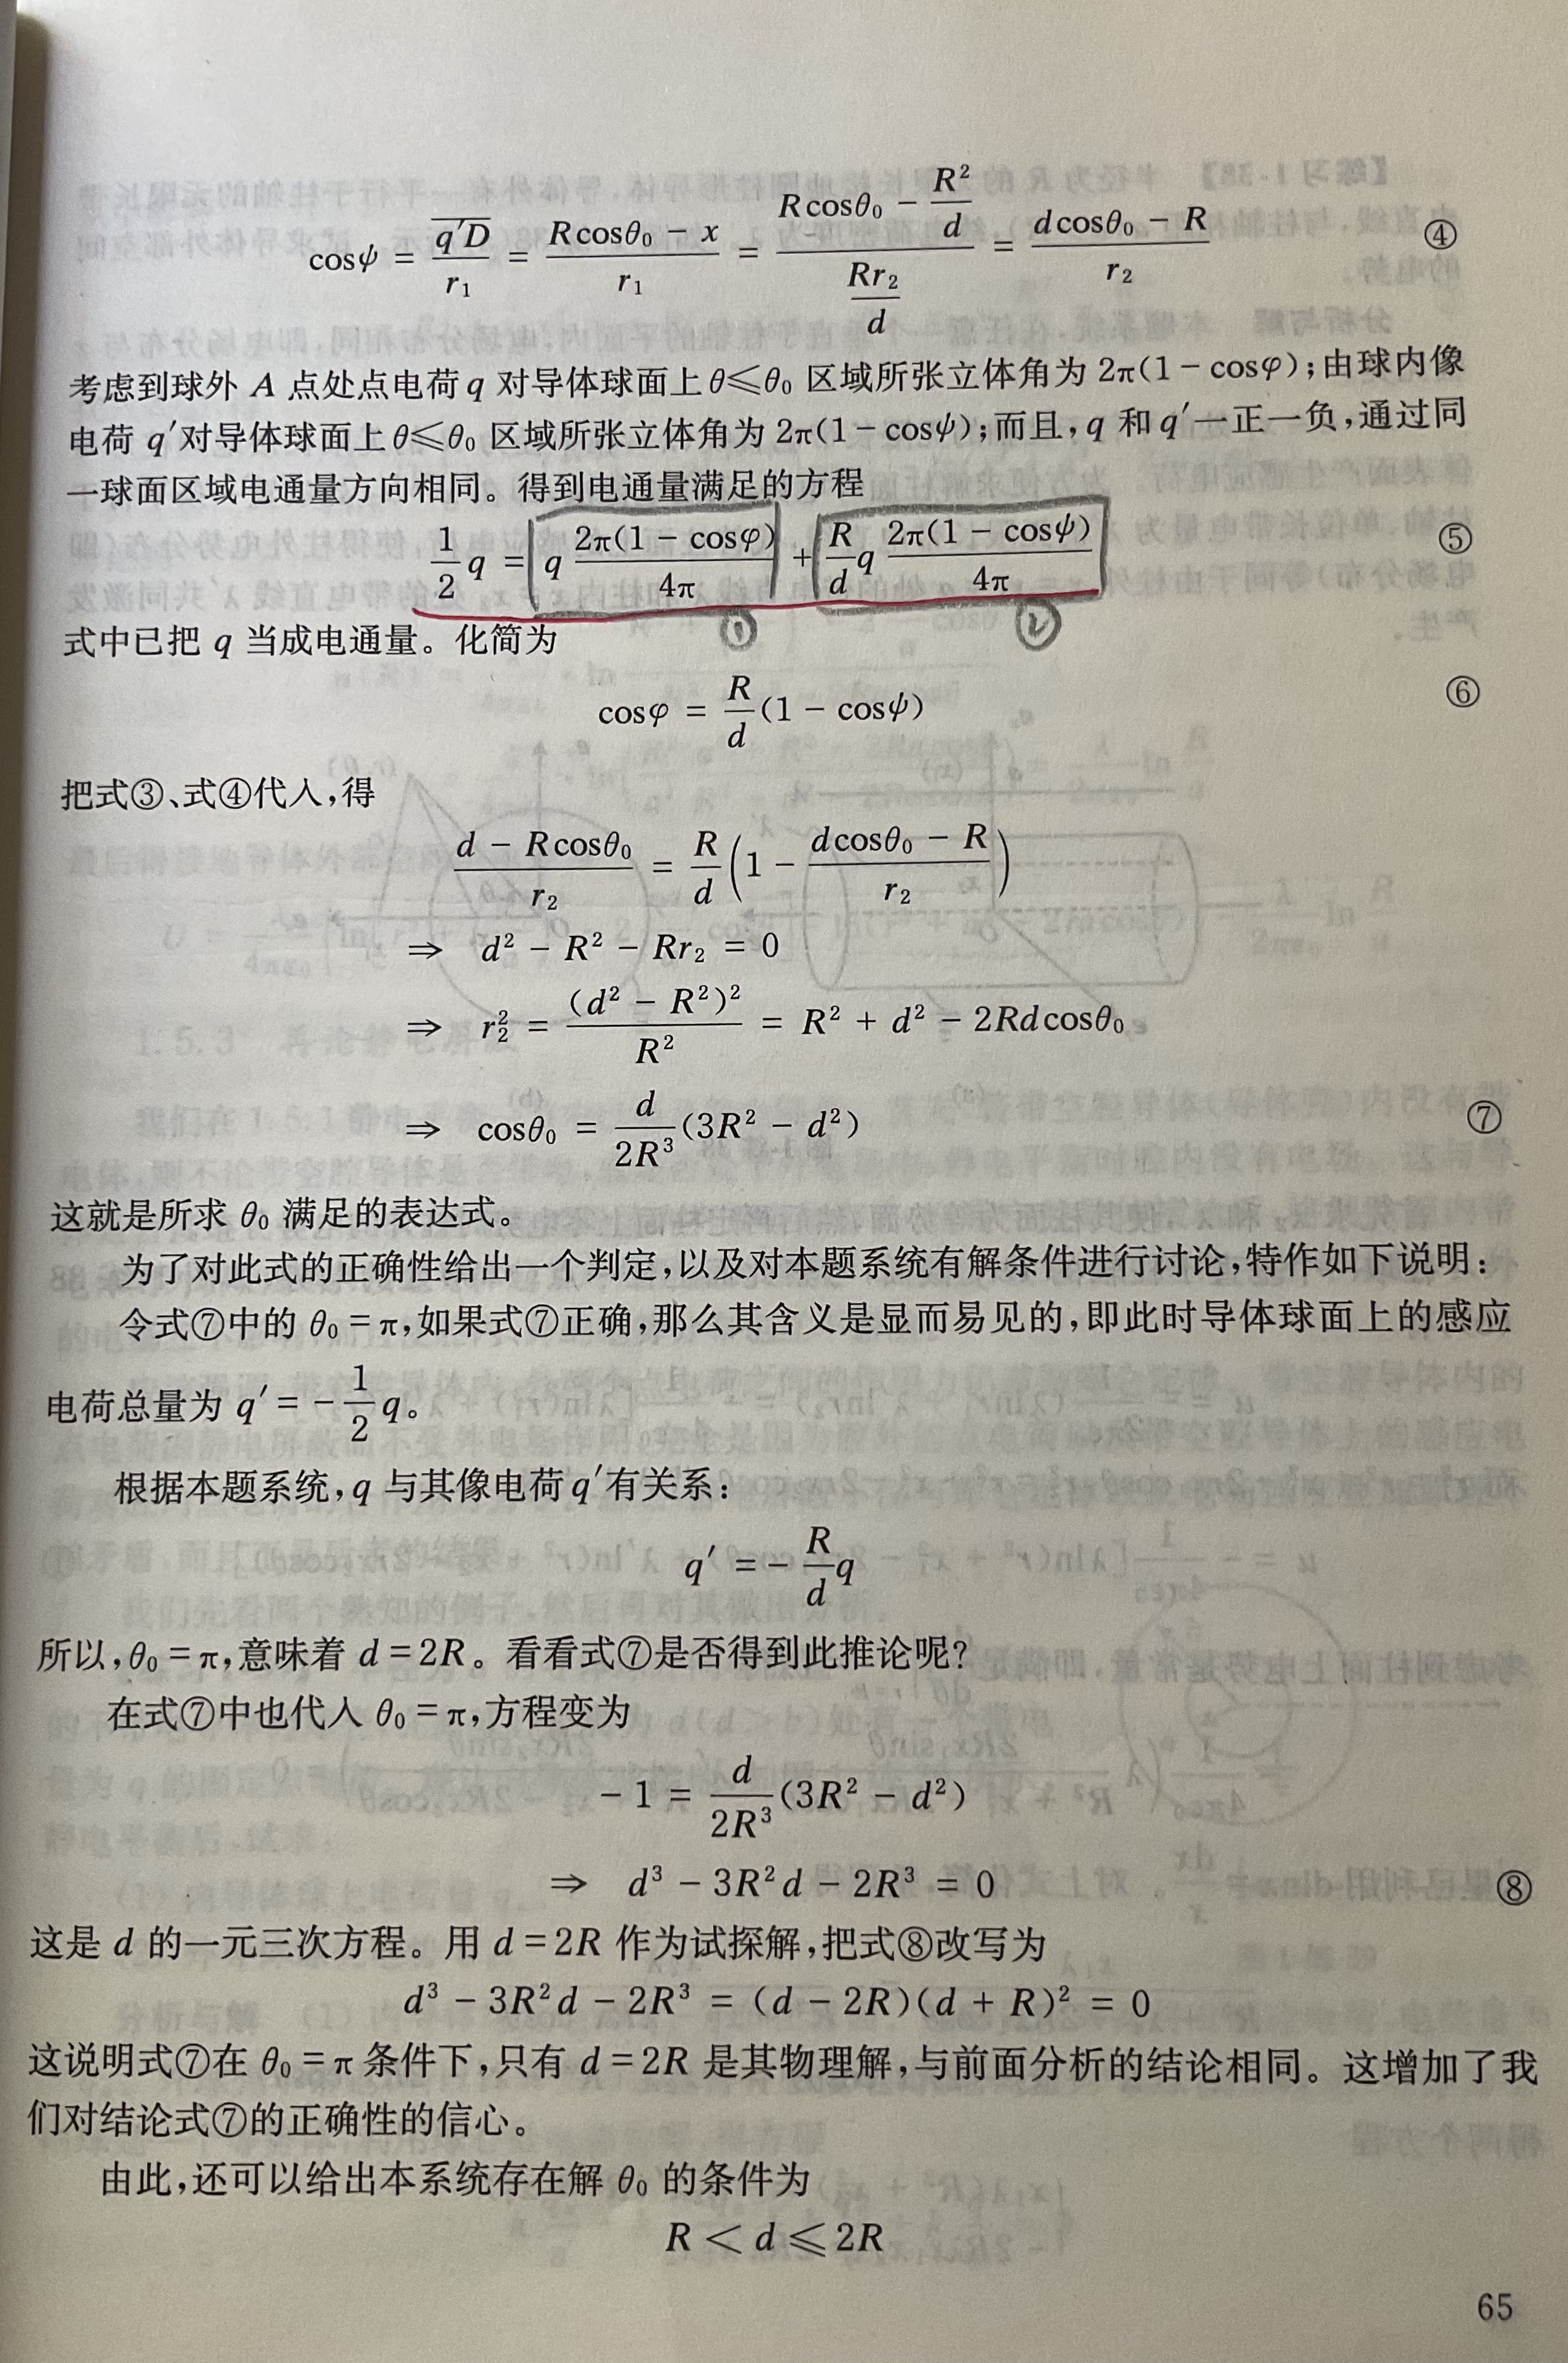 cosψ = q′D/r₁ = (Rcosθ₀ − x)/r₁ = (Rcosθ₀ − R²/d)/(Rr₂/d) = (dcosθ₀ − R)/r₂ ④
考虑到球外 A 点处点电荷 q 对导体球面上 θ⩽θ₀ 区域所张立体角为 2π(1 − cosφ);由球内像
电荷 q′对导体球面上 θ⩽θ₀ 区域所张立体角为 2π(1 − cosψ);而且,q 和 q′一正一负,通过同
一球面区域电通量方向相同。得到电通量满足的方程
1/2 q = q 2π(1 − cosφ)/4π + R/d q 2π(1 − cosψ)/4π ⑤
① ②
式中已把 q 当成电通量。化简为
cosφ = R/d (1 − cosψ) ⑥
把式③、式④代入,得
(d − Rcosθ₀)/r₂ = R/d (1 − (dcosθ₀ − R)/r₂)
⇒ d² − R² − Rr₂ = 0
⇒ r₂² = (d² − R²)²/R² = R² + d² − 2Rdcosθ₀
⇒ cosθ₀ = d/2R³ (3R² − d²) ⑦
这就是所求 θ₀ 满足的表达式。
为了对此式的正确性给出一个判定,以及对本题系统有解条件进行讨论,特作如下说明:
令式⑦中的 θ₀ = π,如果式⑦正确,那么其含义是显而易见的,即此时导体球面上的感应
电荷总量为 q′ = − 1/2 q。
根据本题系统,q 与其像电荷 q′有关系:
q′ = − R/d q
所以,θ₀ = π,意味着 d = 2R。看看式⑦是否得到此推论呢?
在式⑦中也代入 θ₀ = π,方程变为
− 1 = d/2R³ (3R² − d²)
⇒ d³ − 3R²d − 2R³ = 0 ⑧
这是 d 的一元三次方程。用 d = 2R 作为试探解,把式⑧改写为
d³ − 3R²d − 2R³ = (d − 2R)(d + R)² = 0
这说明式⑦在 θ₀ = π 条件下,只有 d = 2R 是其物理解,与前面分析的结论相同。这增加了我
们对结论式⑦的正确性的信心。
由此,还可以给出本系统存在解 θ₀ 的条件为
R < d ⩽ 2R
65